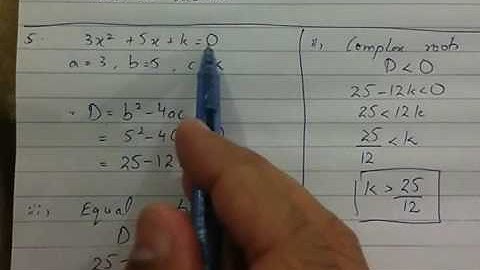 5. 3x² + 5x + k = 0
a = 3, b = 5, c
D = b² - 4ac
= 5² - 4(
= 25 - 12
iii, Equal
D
25 -
ii, Complex roots
D < 0
25 - 12k < 0
25 < 12k
25/12 < k
k > 25/12